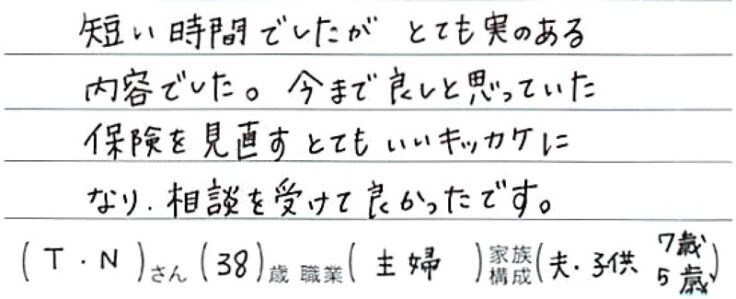 短い時間でしたが とても実のある
内容でした。今まで良しと思っていた
保険を見直すとてもいいキッカケに
なり、相談を受けて良かったです。
(T・N)さん(38)歳 職業(主婦)家族構成(夫・子供 7歳 5歳)